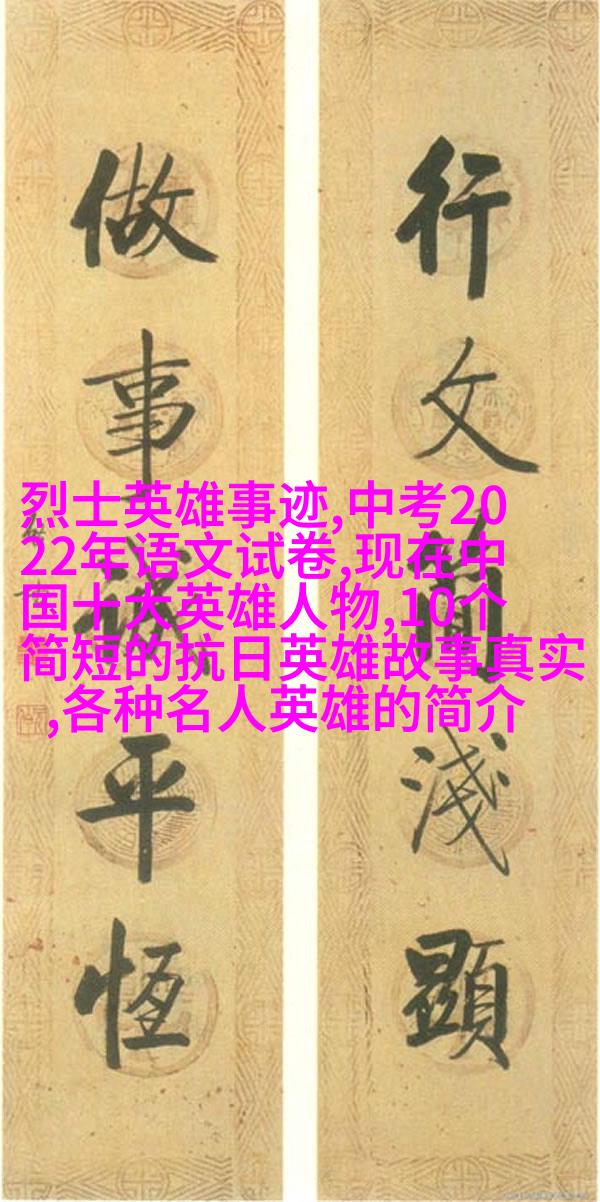 行文簡淺顯
做事誠平恆
烈士英雄事迹,中考20
22年语文试卷,现在中
国十大英雄人物,10个
简短的抗日英雄故事真实
,各种名人英雄的简介